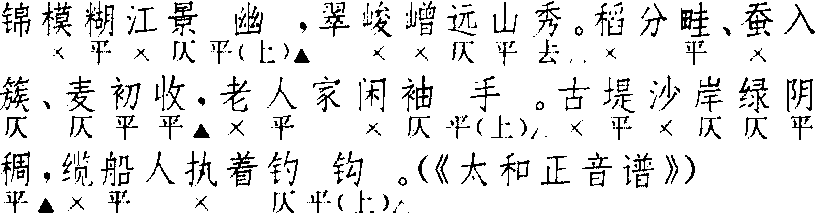 锦模糊江景 幽 ，翠峻嶒远山秀。稻分畦、蚕入
×平×仄平(上)▲ ××仄平去△ × 平 ×
簇、麦初收，老人家闲袖 手 。古堤沙岸绿阴
仄 仄平平▲×平 ×仄平(上)△×平×仄仄平
稠，缆船人执着钓 钩 。(《太和正音谱》)
平▲×平 × 仄平(上)△